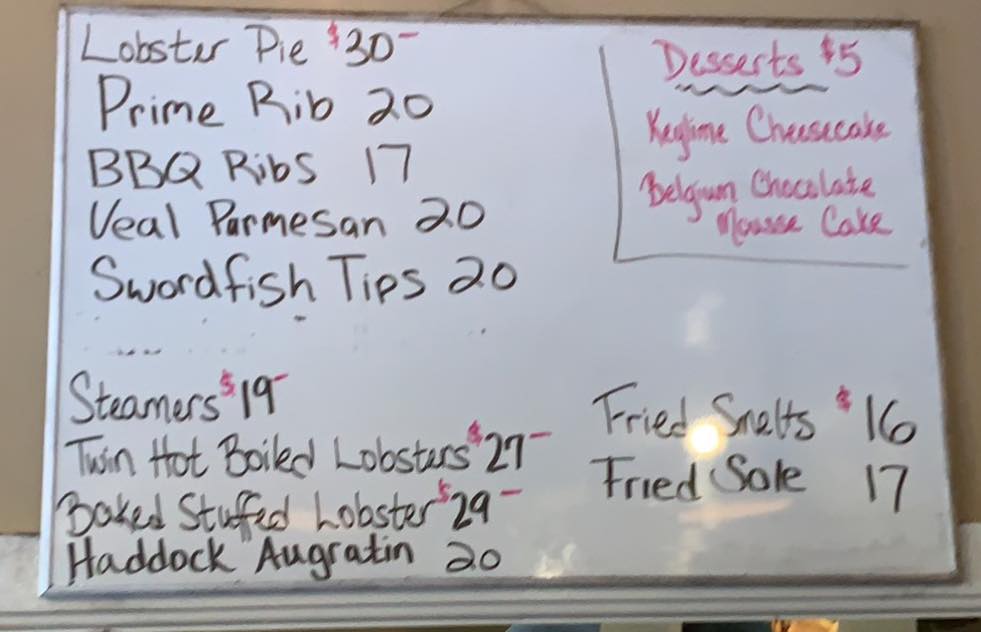 Lobster Pie $30-
Prime Rib 20
BBQ Ribs 17
Veal Parmesan 20
Swordfish Tips 20
Desserts $5
Keylime Cheesecake
Belgium Chocolate
Mousse Cake
Steamers $19-
Twin Hot Boiled Lobsters $27-
Baked Stuffed Lobster $29-
Haddock Augratin 20
Fried Smelts $16
Fried Sole 17